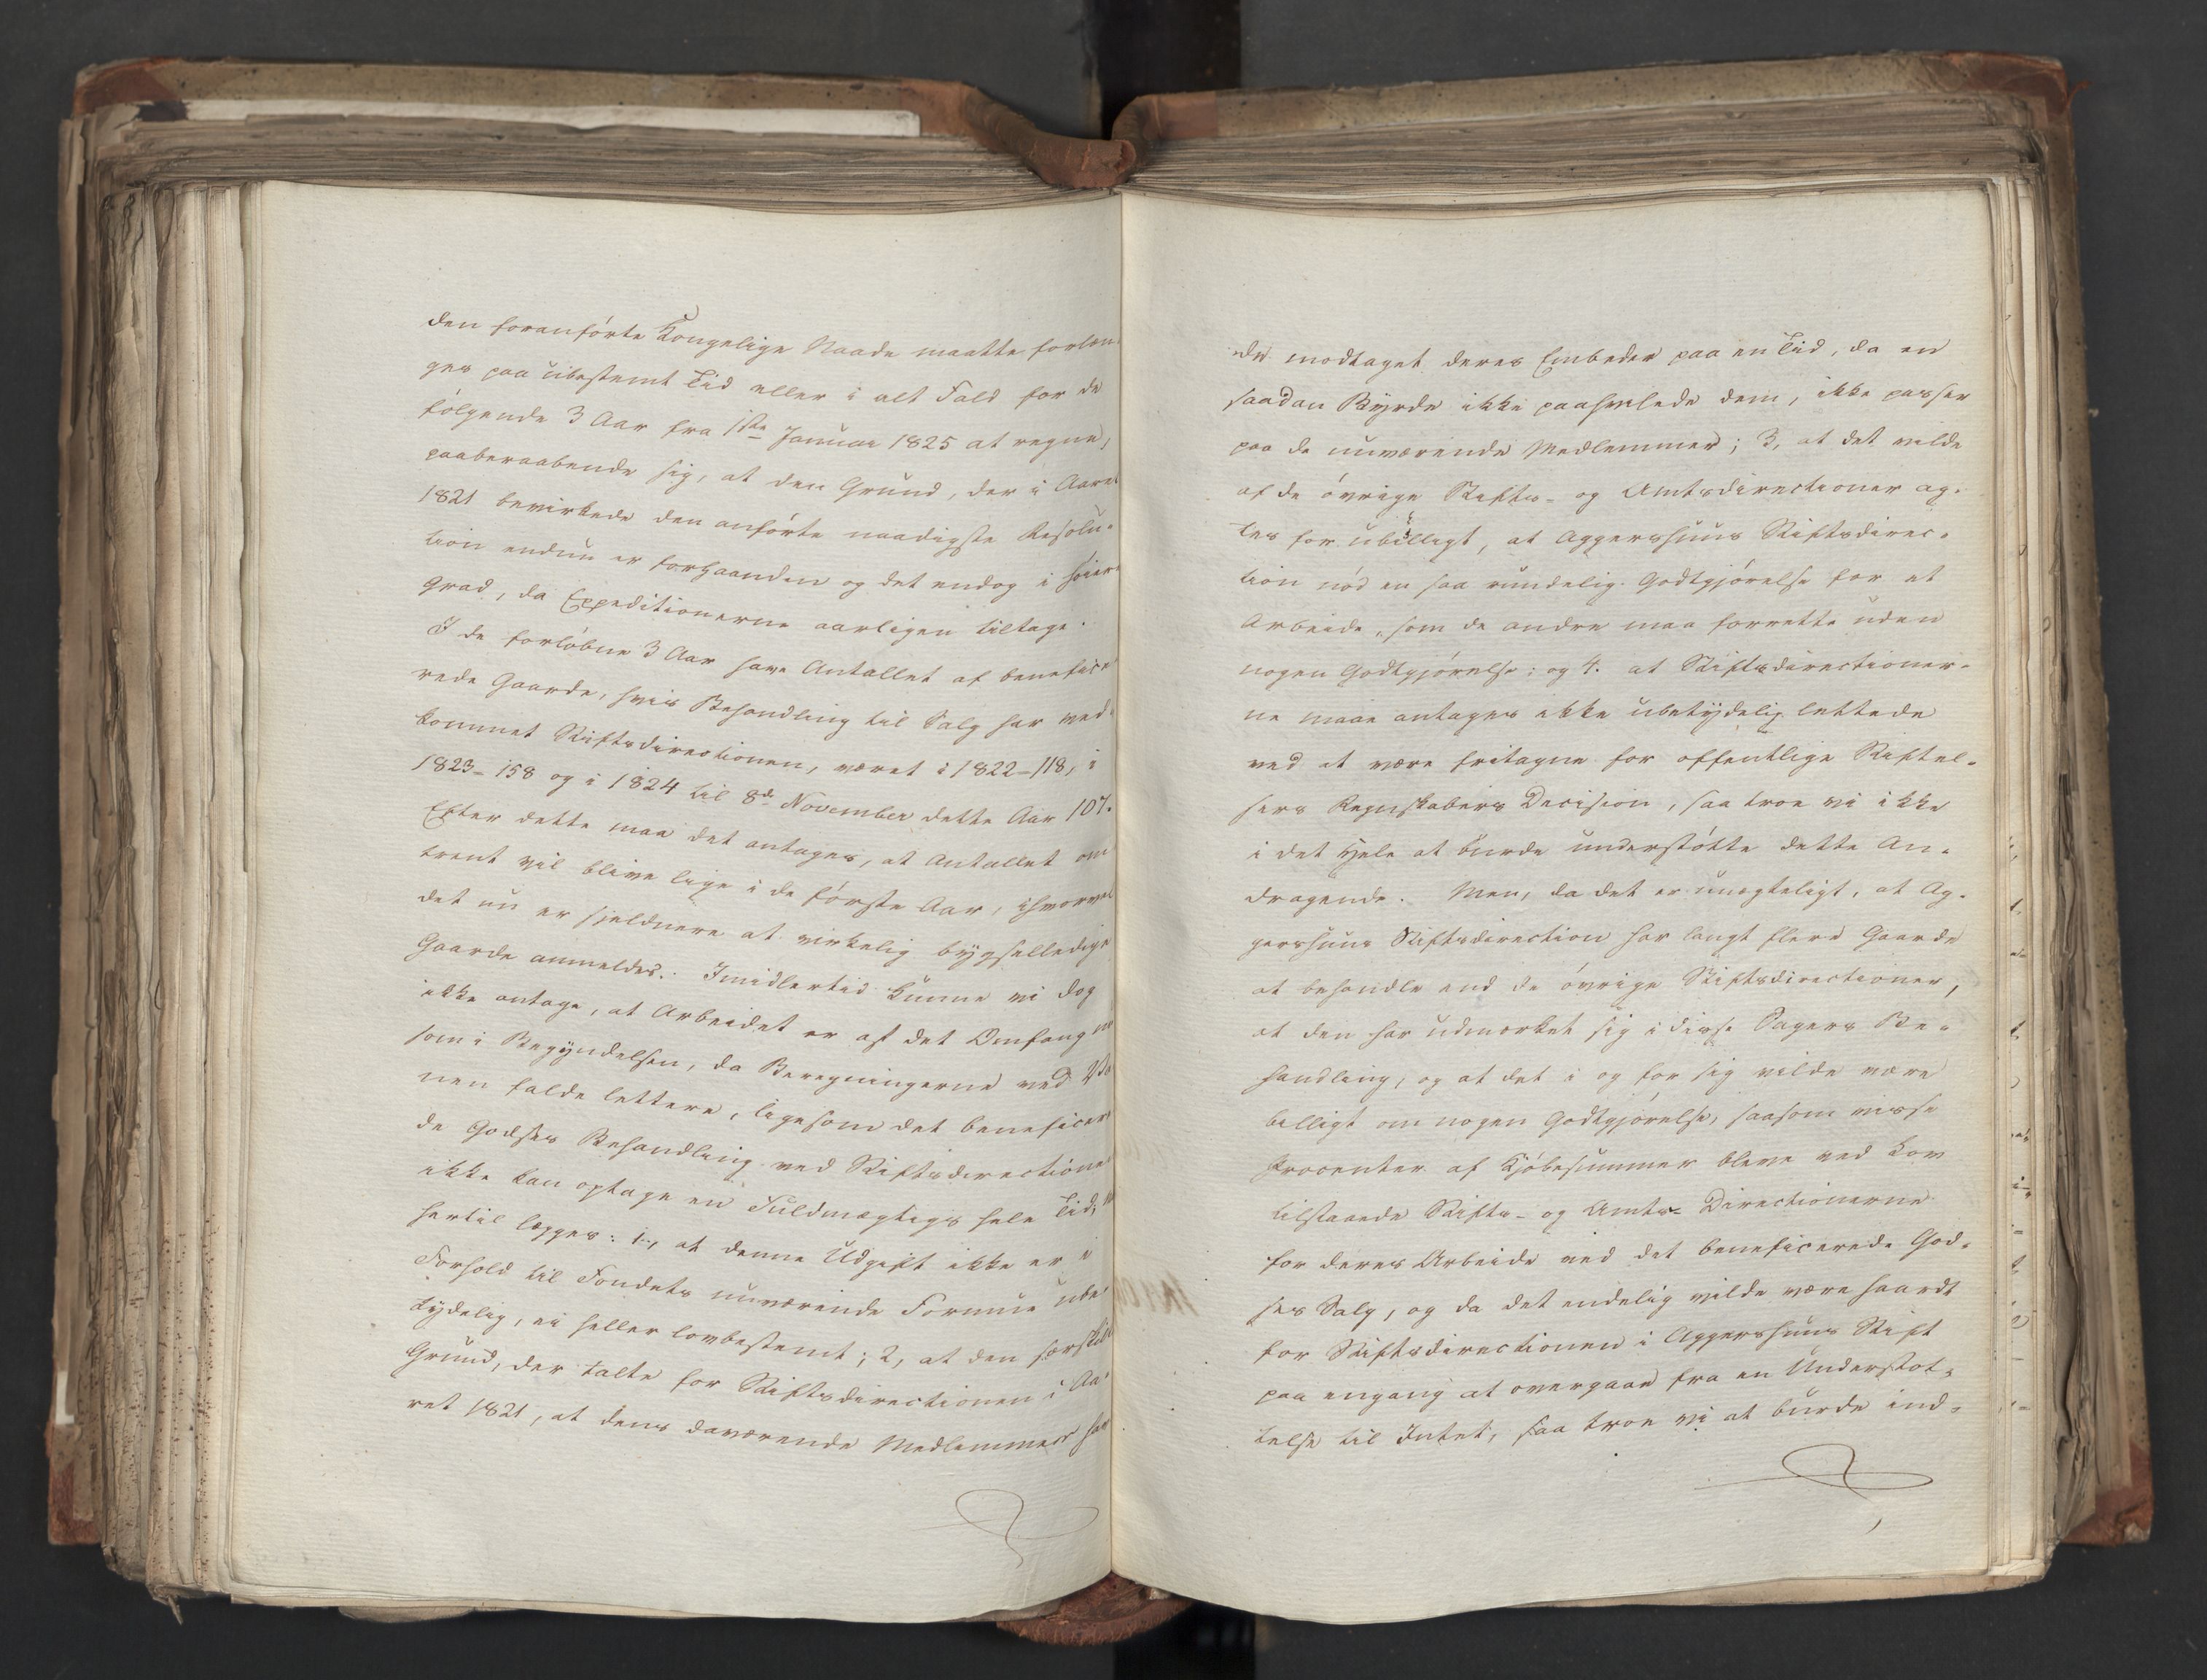 den foranførte Kongelige Naade maatte forlæn-
ges paa ubestemt Tid eller i alt Fald for de
følgende 3 Aar fra 1ste Januar 1825 at regne,
paaberaabende sig, at den Grund, der i Aaret
1821 bevirkede den anførte naadigste Resolu-
tion endnu er forhaanden og det endog i høiere
Grad, da Expeditionerne aarligen tiltage.
I de forløbne 3 Aar have Antallet af benefice-
rede Gaarde, hvis Behandling til Salg har ved-
kommet Stiftsdirectionen, været i 1822 - 118, i
1823 - 158 og i 1824 til 8de November dette Aar 107.
Efter dette maa det antages, at Antallet om-
trent vil blive lige i de første Aar, ihvorvel
det nu er sjeldnere at virkelig bygselledige
Gaarde anmeldes. Imidlertid kunne vi dog
ikke antage, at Arbeidet er af det Omfang nu
som i Begyndelsen, da Beregningerne ved
nen falde lettere, ligesom det beneficere-
de Godses Behandling ved Stiftsdirectionen
ikke kan optage en Fuldmægtigs hele Tid;
hertil lægges: 1, at denne Udgift ikke er i
Forhold til Fondets nuværende Formue ube-
tydelig, ei heller lovbestemt; 2, at den særskilte
Grund, der talte for Stiftsdirectionen i Aa-
ret 1821, at dens daværende Medlemmer hav-
de modtaget deres Embeder paa en Tid, da en
saadan Byrde ikke paahvilede dem, ikke passer
paa de nuværende Medlemmer; 3, at det vilde
af de øvrige Stifts- og Amtsdirectioner ag-
tes for ubilligt, at Aggershuus Stiftsdirec-
tion nød en saa rundelig Godtgjørelse for et
Arbeide, som de andre maa forrette uden
nogen Godtgjørelse; og 4. at Stiftsdirectioner-
ne maae antages ikke ubetydelig lettede
ved at være fritagne for offentlige Stiftel-
sers Regnskabers Decision, saa troe vi ikke
i det Hele at burde understøtte dette An-
dragende. Men, da det er unegteligt, at Ag-
gershuus Stiftsdirection har langt flere Gaarde
at behandle end de øvrige Stiftsdirectioner,
at den har udmærket sig i disse Sagers Be-
handling, og at det i og for sig vilde være
billigt om nogen Godtgjørelse, saasom visse
Procenter af Kjøbesummer bleve ved Lov
tilstaaede Stifts- og Amts-Directionerne
for deres Arbeide ved det beneficerede God-
ses Salg, og da det endelig vilde være haardt
for Stiftsdirectionen i Aggershuus Stift
paa engang at overgaae fra en Understøt-
telse til Intet, saa troe vi at burde ind-